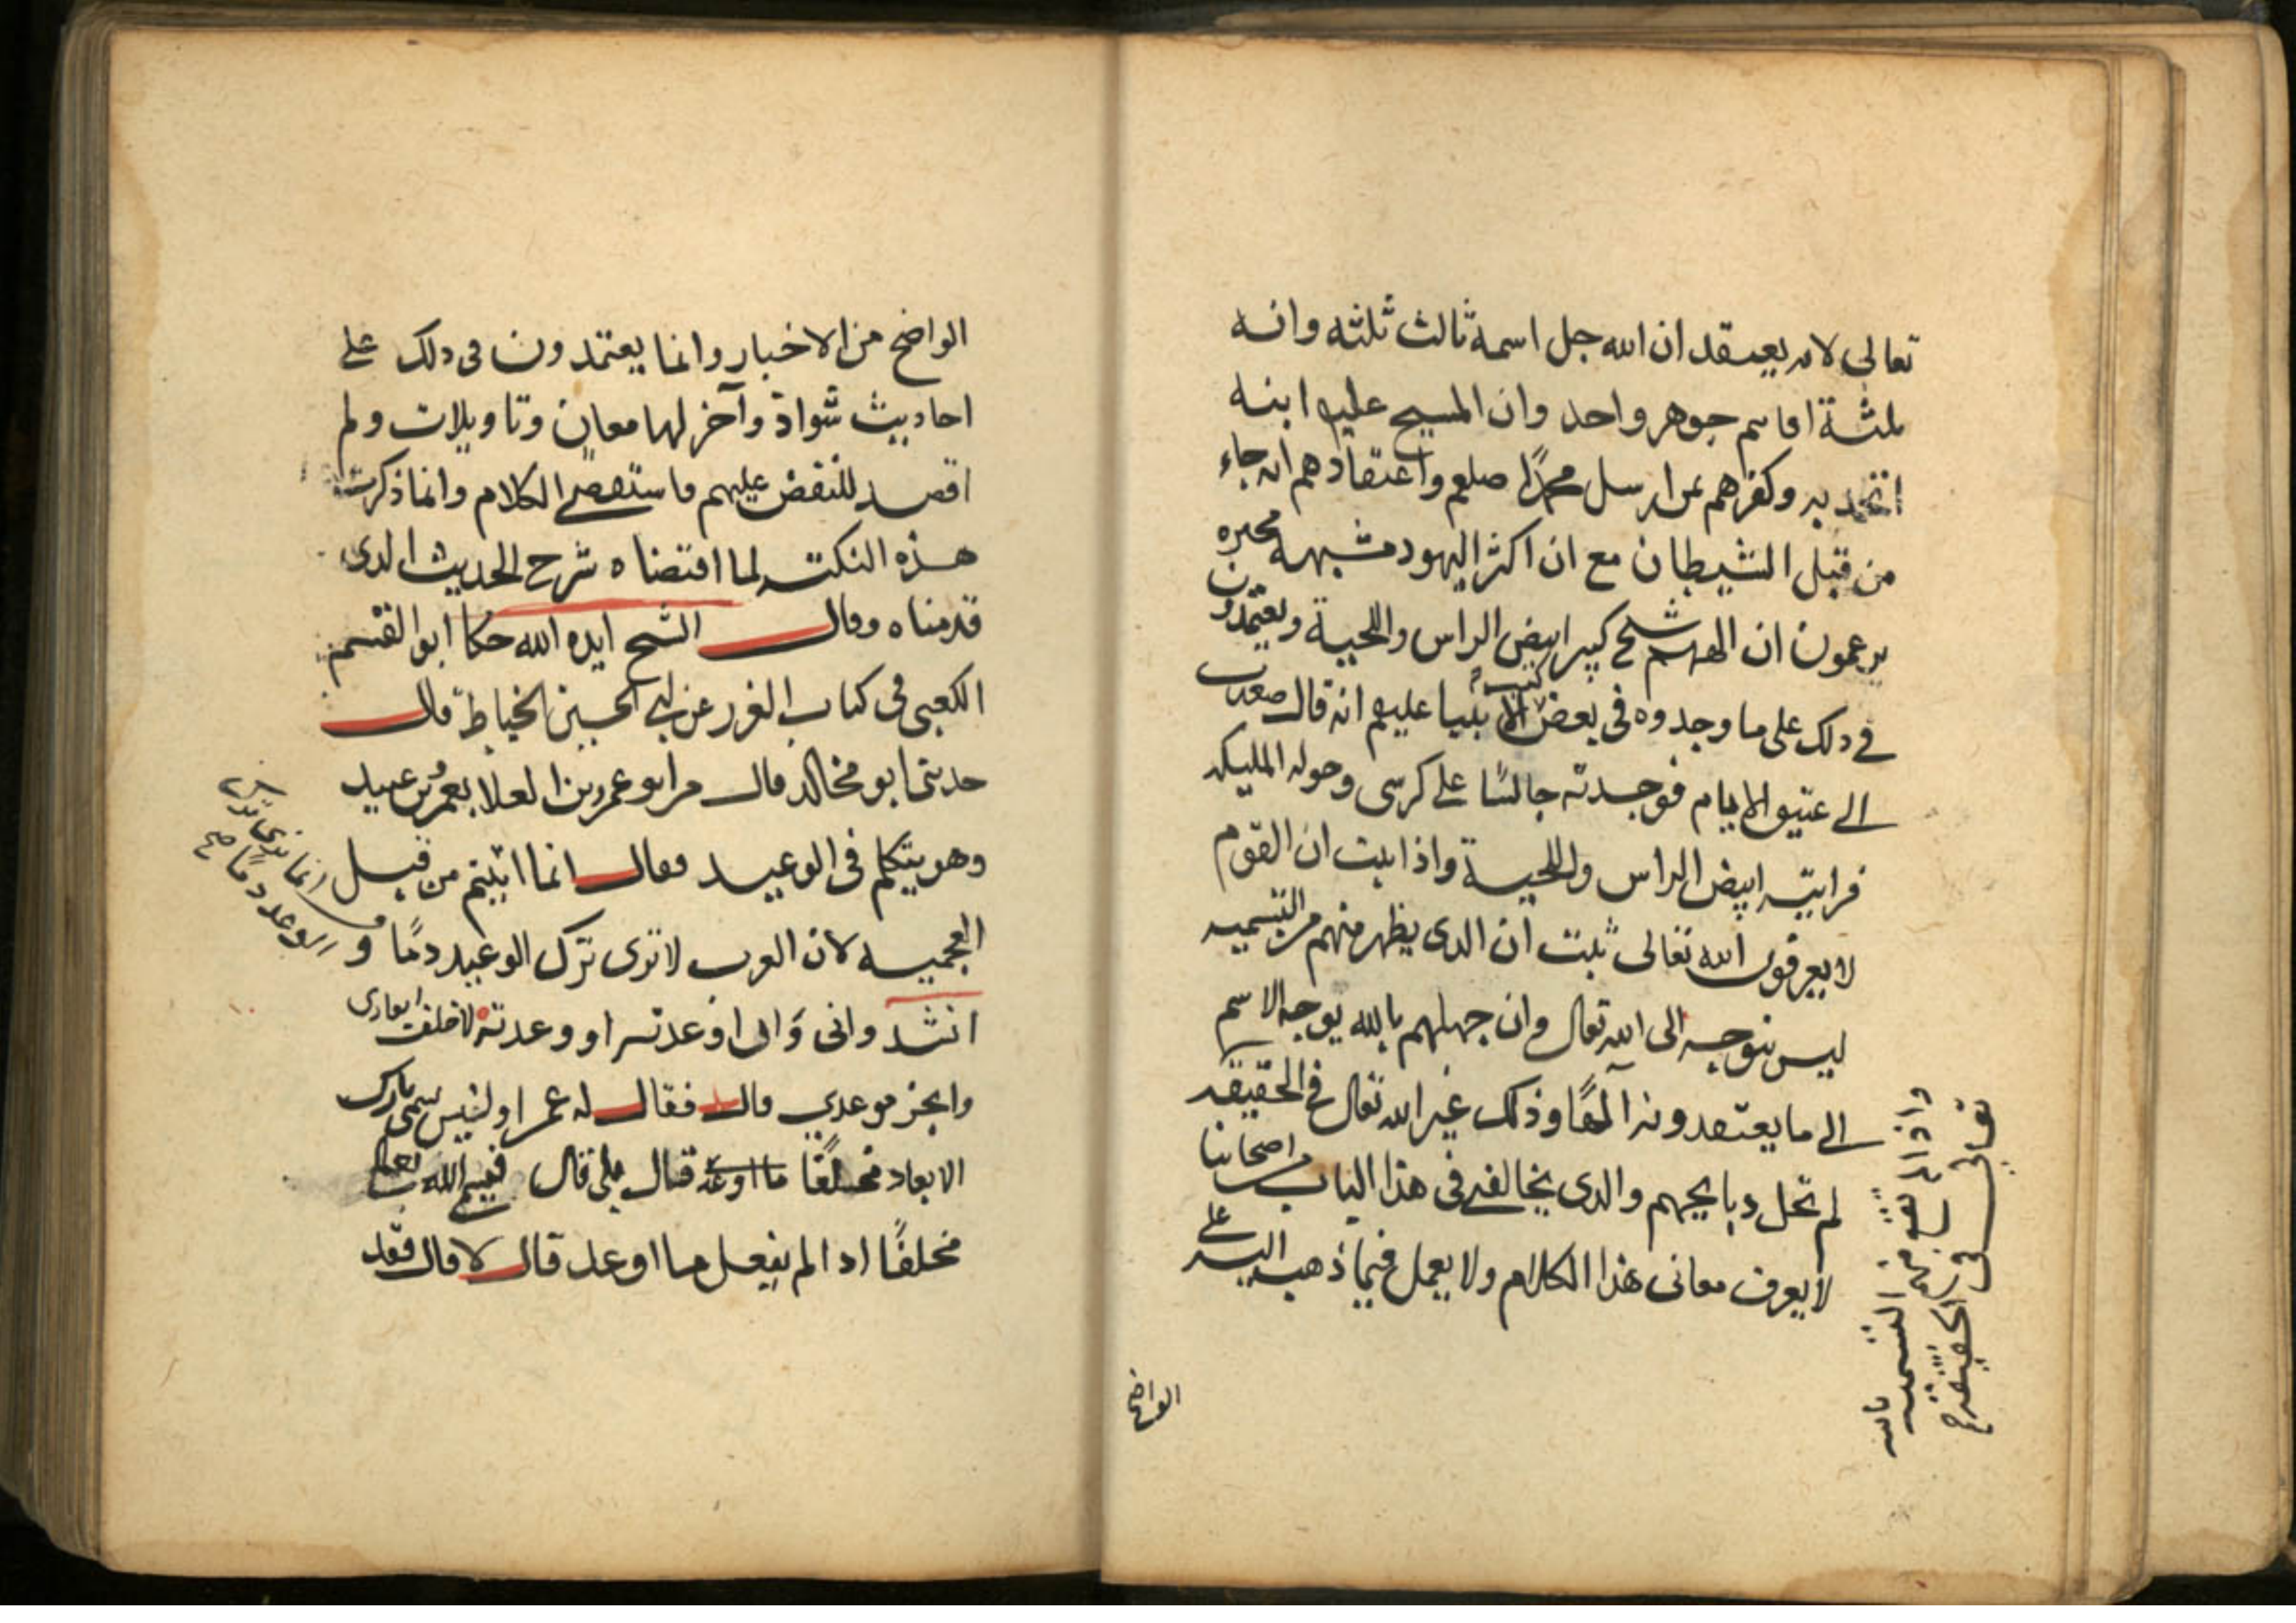 تعالى لانه يعتقد ان الله جل اسمه ثالث ثلثه وانه
ثلثة اقانيم جوهر واحد وان المسيح عليه ابنه
اتحد به وكفرهم بمن ارسل محمدًا صلعم واعتقادهم انه جاء
من قبل الشيطان مع ان اكثر اليهود مشبهة مجبره
يزعمون ان الههم شيخ كبير ابيض الراس واللحية ويعتمدون
في ذلك على ما وجدوه في بعض كتب الانبيا عليهم انه قال صعدت
الى عتيق الايام فوجدته جالسًا على كرسي وحوله المليكه
فرايته ابيض الراس واللحية واذا ثبت ان القوم
لا يعرفون الله تعالى ثبت ان الذي يظهر منهم من التسميه
ليس بتوجه الى الله تعالى وان جهلهم بالله يوجه الاسم
الى ما يعتقدونه الهًا وذلك غير الله تعالى في الحقيقه
واذا لم تقع منهم التسمية بالله
تعالى في الحقيقة صح
لم تحل ذبايحهم والذي يخالف في هذا الباب من اصحابنا
لا يعرف معاني هذا الكلام ولا يعمل فيما ذهب اليه على
الواضح
الواضح من الاخبار وانما يعتمدون في ذلك على
احاديث شواذ وآخر لها معان وتاويلات ولم
اقصد للنقض عليهم فاستقصى الكلام وانما ذكرت
هذه النكته لما اقتضاه شرح الحديث الذي
قدمناه وقال الشيخ ايده الله حكا ابو القسم
الكعبي في كتاب الغرر عن ابي الحسين الخياط قال
حدثني ابو مخالد قال مر ابو عمرو بن العلا بعمرو بن عبيد
وهو يتكلم في الوعيد فقال انما اتيتم من قبل
العجميه لان العرب لا ترى ترك الوعيد ذمًا و
انما ترى ترك
الوعد ذمًا صح
انشد واني وان اوعدته او وعدته لاخلف ايعادي
وانجز موعدي قال فقال له عمرو اوليس يسمى تارك
الايعاد مخلفًا قال بلى قال فيسمى الله تعالى
مخلفًا اذا لم يفعل ما اوعد قال لا قال فقد